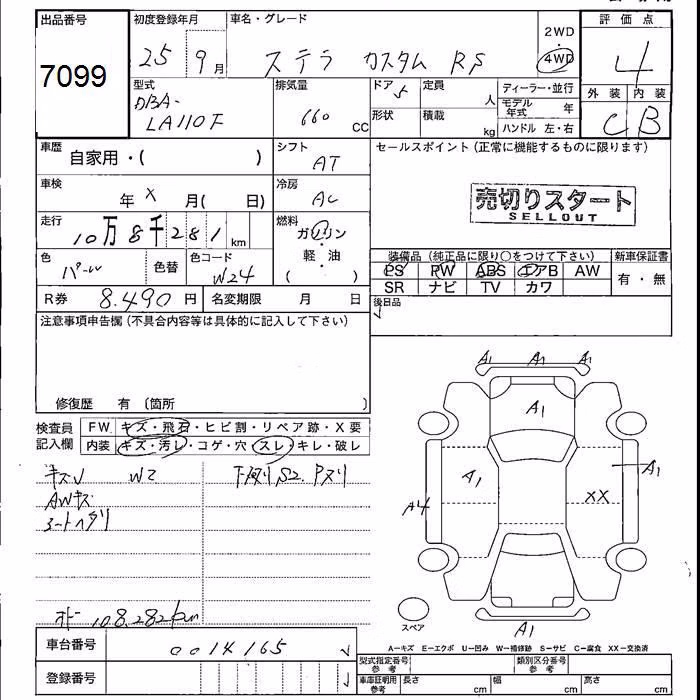 出品番号 初度登録年月 車名・グレード 2WD 評価点
7099 25 9月 ステラ カスタム RS ・ 4WD 4
型式 排気量 ドア 5 定員 人 ディーラー・並行 外装 内装
DBA- LA110F 660 CC 形状 積載 kg モデル年式 年 C B
ハンドル 左・右
車歴 自家用・( ) シフト AT セールスポイント(正常に機能するものに限ります)
車検 年 X 月( 日) 冷房 AC
売切りスタート
SELLOUT
走行 10万8千281km 燃料 ガソリン・軽・油( )
色 パール 色替 色コード W24
装備品(純正品に限り○をつけて下さい) 新車保証書
PS PW ABS エアB AW 有・無
SR ナビ TV カワ
R券 8.490円 名変期限 月 日 後日品
注意事項申告欄(不具合内容等は具体的に記入して下さい)
修復歴 有(箇所 )
検査員記入欄 FW キズ・飛石・ヒビ割・リペア跡・X要
内装 キズ・汚レ・コゲ・穴・スレ・キレ・破レ
W2 S2.
AWキズ
シートヘタリ
108.282km
A1 A1 A1
A1
A1 A1
A4 XX
A1
スペア
A-キズ E-エクボ U-凹み W-補修跡 S-サビ C-腐食 XX-交換済
車台番号 0014165
登録番号
型式指定番号参考 類別区分番号参考
車庫証明用参考 長さ cm 幅 cm 高さ cm